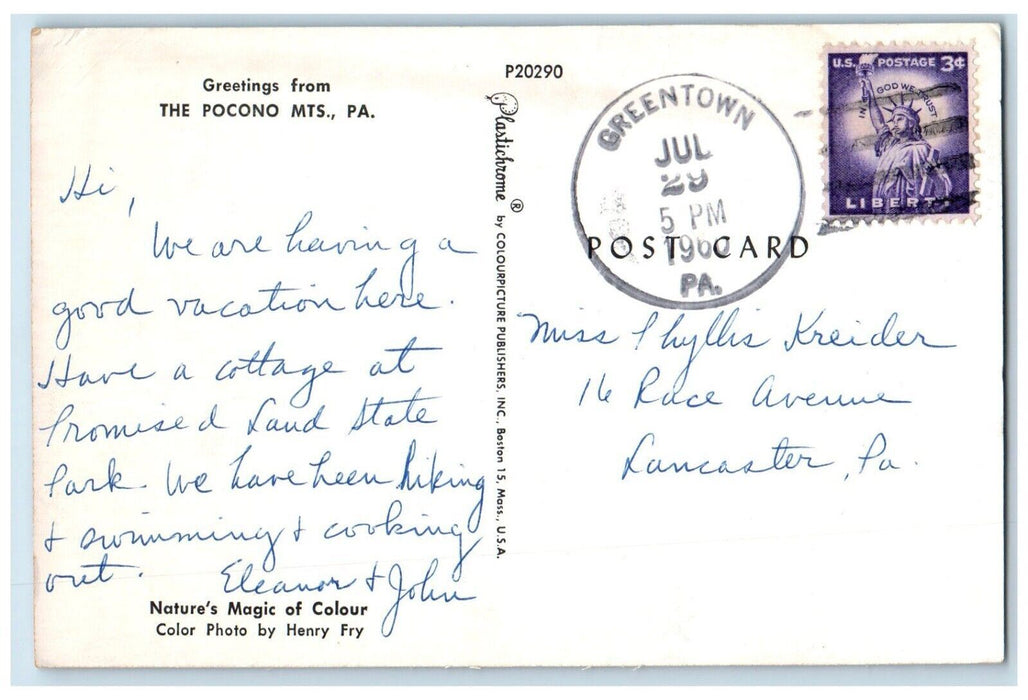 Greetings from
THE POCONO MTS., PA.
Hi,
We are having a
good vacation here.
Have a cottage at
Promised Land State
Park. We have been hiking
+ swimming + cooking
out. Eleanor + John
Nature's Magic of Colour
Color Photo by Henry Fry
P20290
Plastichrome ® by COLOURPICTURE PUBLISHERS, INC., Boston 15, Mass., U.S.A.
GREENTOWN
JUL
29
5 PM
1960
PA.
U.S. POSTAGE 3¢
IN GOD WE TRUST
LIBERTY
POST CARD
Miss Phyllis Kreider
16 Race Avenue
Lancaster, Pa.